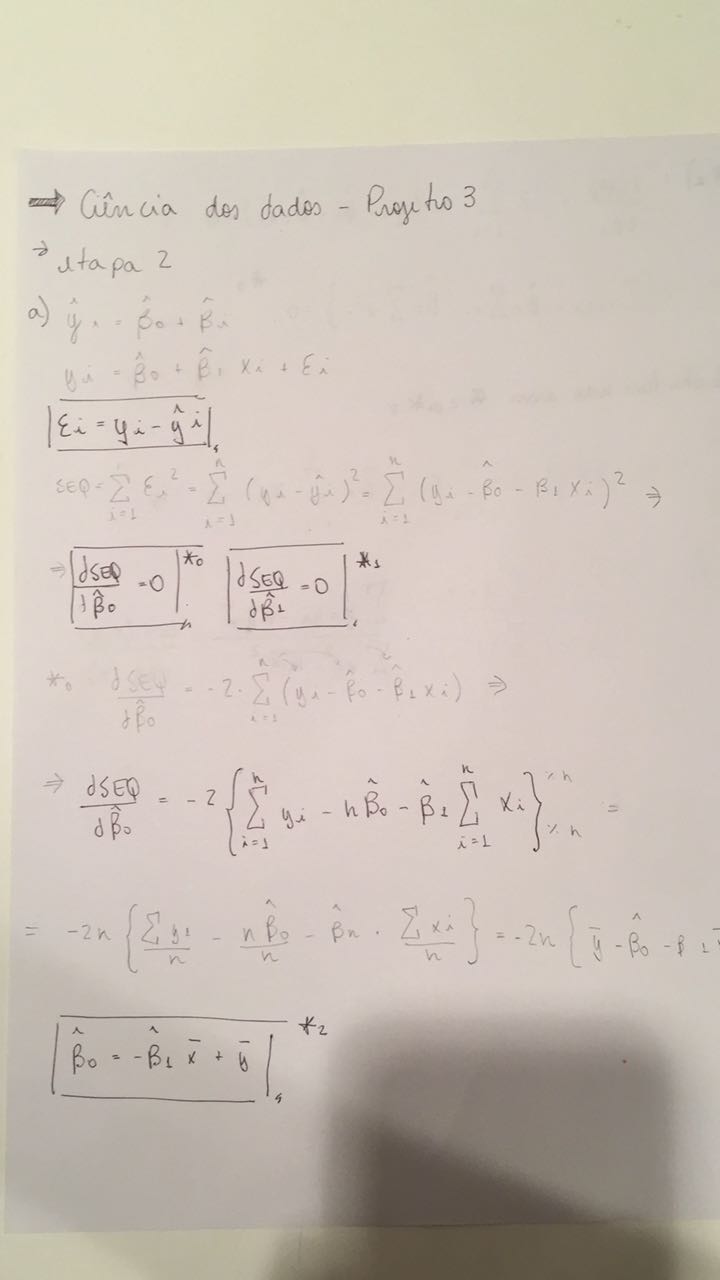 ⇒ Ciência dos dados - Projetro 3
→ etapa 2
a) ŷi = β̂0 + β̂i
yi = β̂0 + β̂1 xi + Ei
Ei = yi - ŷi
SEQ = ∑_{i=1} Ei² = ∑_{i=1}^{n} (yi - ŷi)² = ∑_{i=1}^{n} (yi - β̂0 - β1 xi)² ⇒
⇒ dSEQ/dβ̂0 = 0 *0 dSEQ/dβ̂1 = 0 *1
*0 dSEQ/dβ̂0 = -2 · ∑_{i=1}^{n} (yi - β̂0 - β̂1 xi) ⇒
⇒ dSEQ/dβ̂0 = -2 { ∑_{i=1}^{n} yi - nβ̂0 - β̂1 ∑_{i=1}^{n} xi } ×n ⁒n =
= -2n { ∑y1/n - nβ̂0/n - β̂n · ∑xi/n } = -2n { ȳ - β̂0 - β1
β̂0 = -β̂1 x̄ + ȳ *2